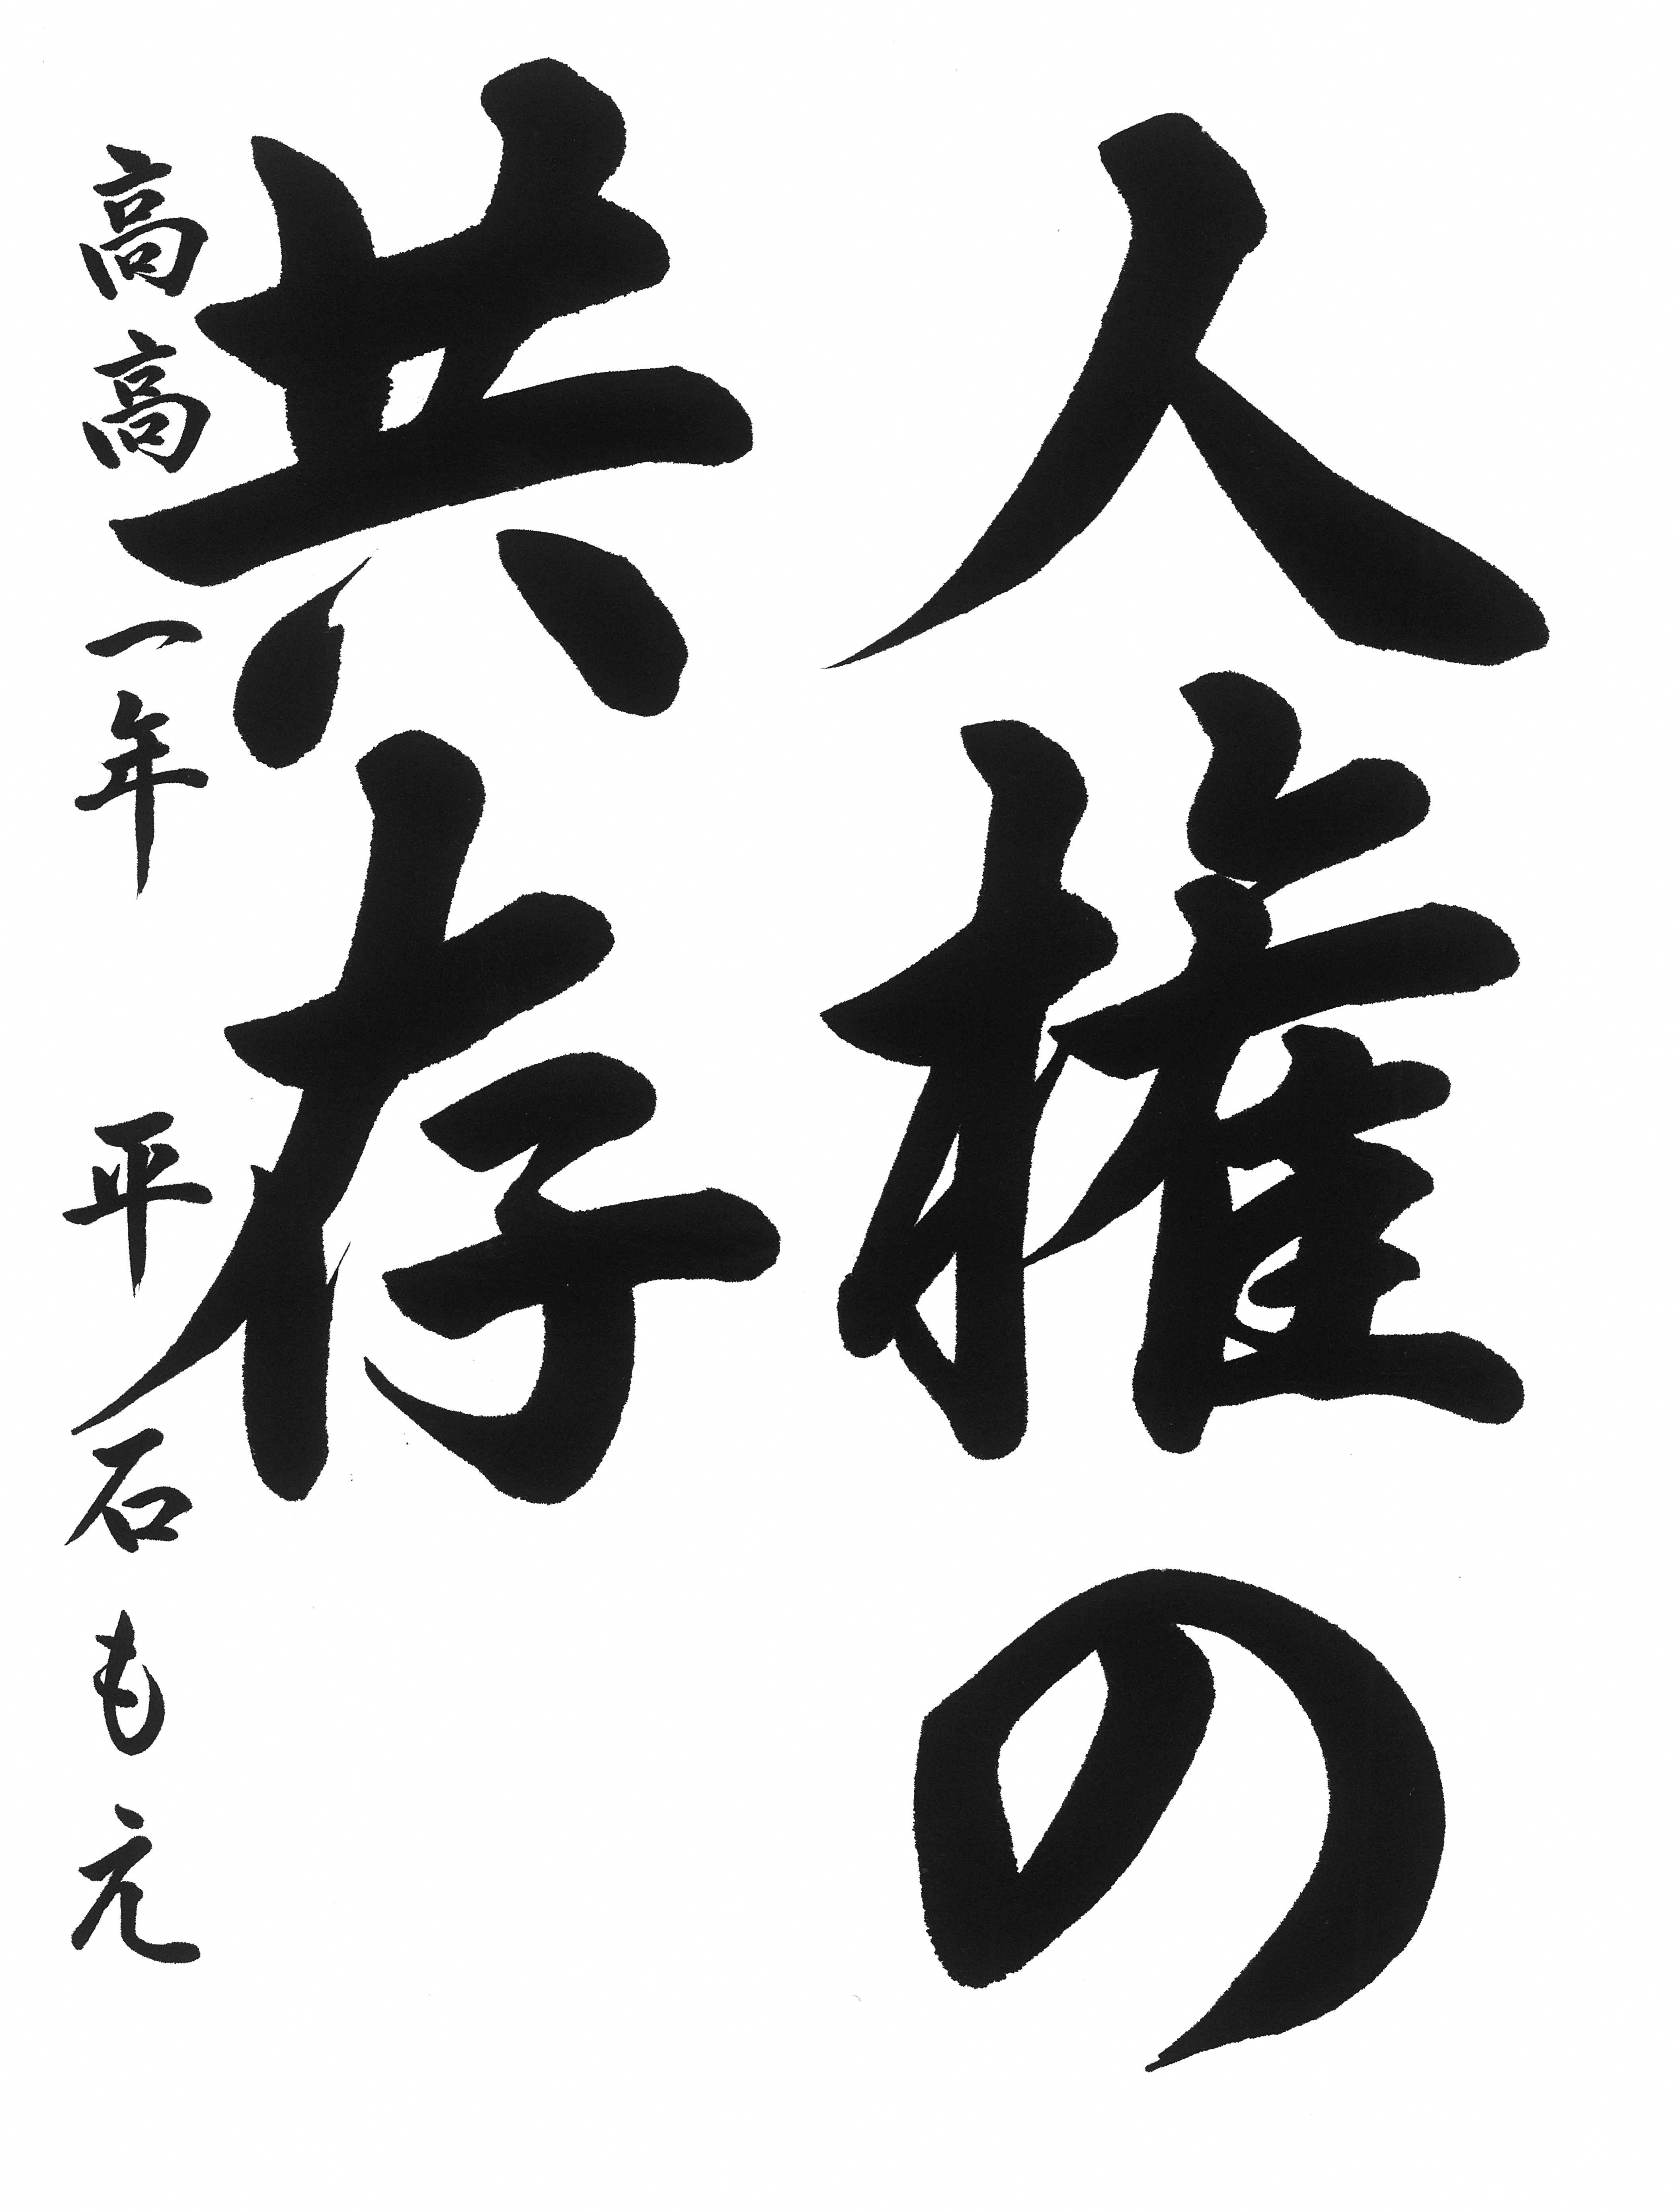 人権の
共存
高高一年 平石もえ